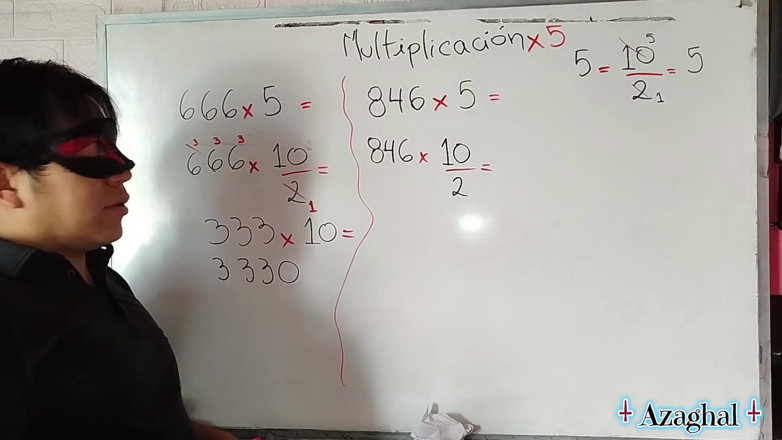 Multiplicación x 5
5 = 10/2 = 5
5
1
666 x 5 =
3 3 3
666 x 10/2 =
1
333 x 10 =
3330
846 x 5 =
846 x 10/2 =
Azaghal